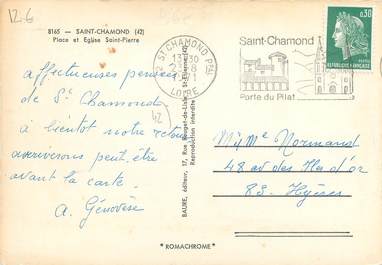 12.6
8165 - SAINT-CHAMOND (42)
Place et Eglise Saint-Pierre
affectueuses pensées
de St Chamond
à bientôt notre retour
arriverons peut-être
avant la carte.
A. Génovèse
42
BAURE, éditeur, 17, Rue Rouget-de-Lisle, St-Etienne (42)
Reproduction interdite
ST CHAMOND PPAL
LOIRE
Saint-Chamond
Porte du Pilat
0,30
REPUBLIQUE FRANCAISE
Mr Me Normand
48 av des Iles d'or
83. Hyères
"ROMACHROME"